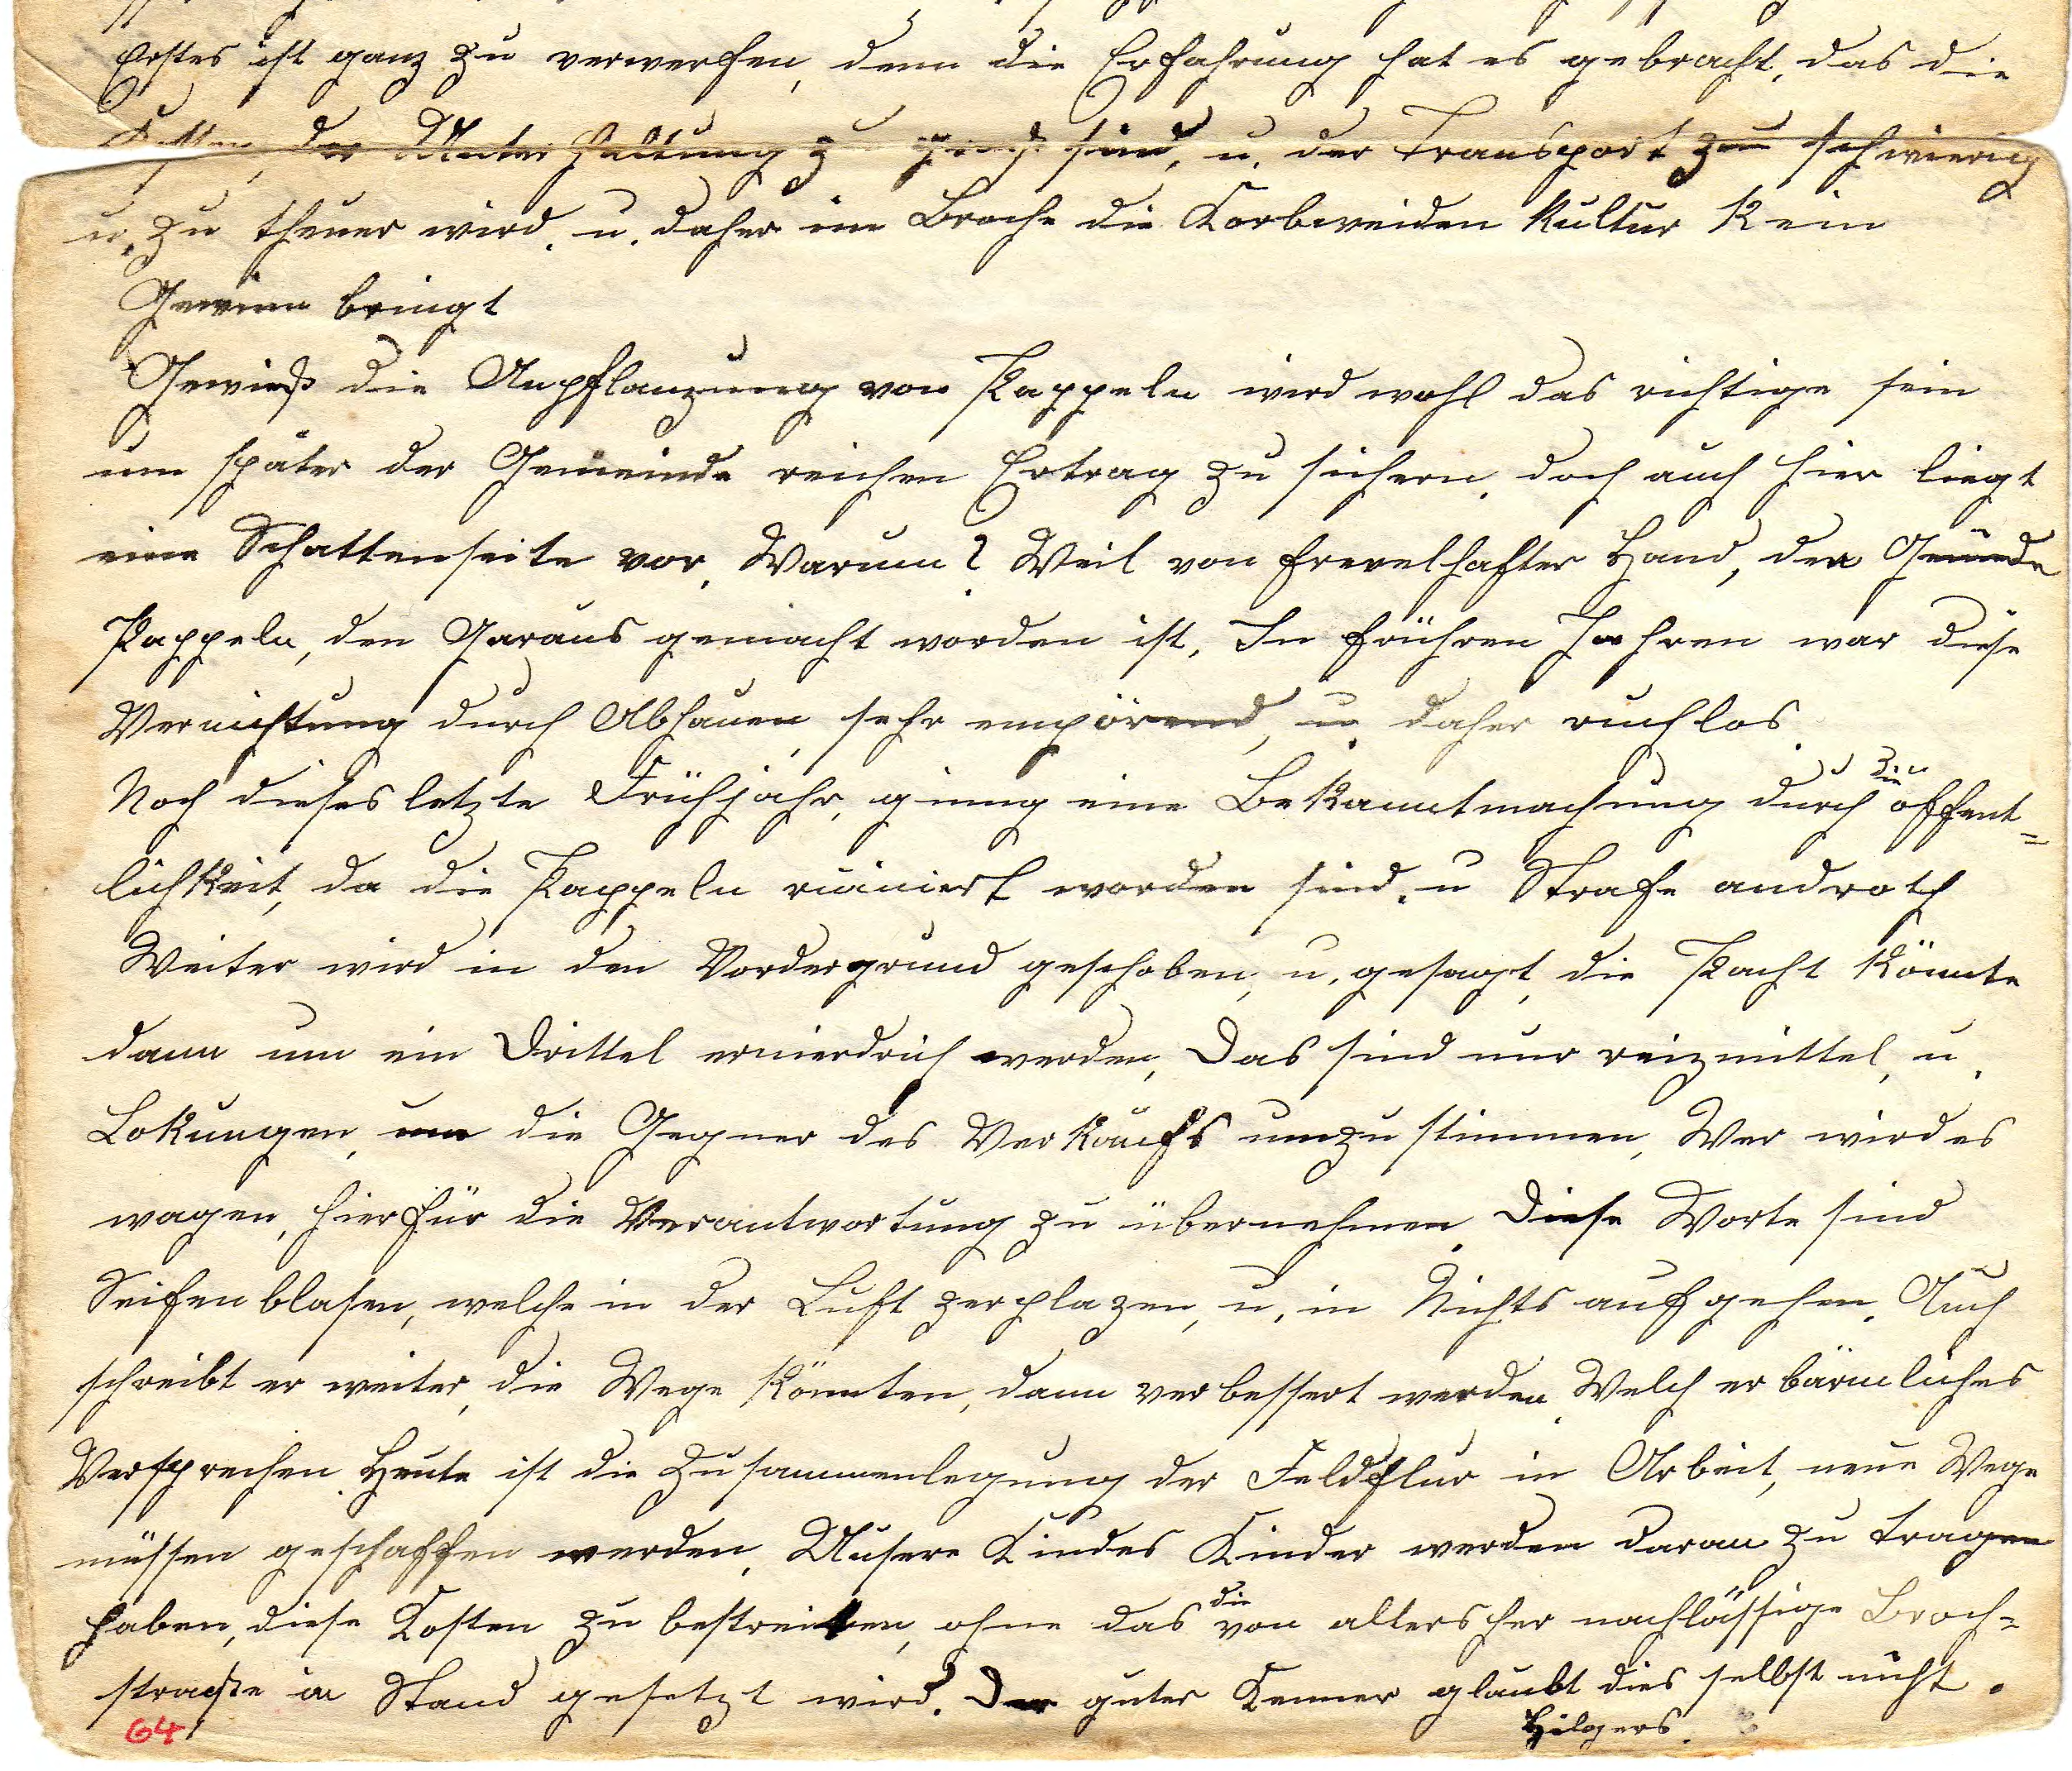 Erstes ist ganz zu verwerfen, denn die Erfahrung hat es gebracht, das die
Kosten, der Unterhaltung zu hoch sind, u. der Transport zu schwierig
u. zu theuer wird. u. daher im Broche die Korbweiden Kultur Kein
Gewinn bringt
Gewiß die Anpflanzung von Pappeln wird wohl das richtige sein
um später der Gemeinde reichen Ertrag zu sichern. doch auch hier liegt
eine Schattenseite vor. Warum? Weil von frevelhafter Hand, den
Pappeln, den Garaus gemacht worden ist. In frühren Jahren war diese
Vernichtung durch Abhauen sehr empörend, u. daher ruchlos.
Noch dieses letzte Frühjahr, ging eine Bekanntmachung durch die öffent=
lichkeit, da die Pappeln ruiniert worden sind. u Strafe androth
Weiter wird in den Vordergrund geschoben, u. gesagt, die Pacht Könnte
dann um ein Drittel ernierdrich werden, Das sind nur reizmittel, u.
Lokungen, um die Gegner des Verkaufs umzustimmen, Wer wird es
wagen, hierfür die Verantwortung zu übernehmen. Diese Worte sind
Seifenblasen, welche in der Luft zerplazen, u. in Nichts aufgehen. Auch
schreibt er weiter, die Wege Könnten, dann verbessert werden. Welch erbärmliches
Versprechen. Heute ist die Zusammenlegung der Feldflur in Arbeit, neue Wege
müssen geschaffen werden. Unsere Kindes Kinder werden daran zu tragen
haben, diese Kosten zu bestreiten, ohne das die von altersher nachlässige Broch=
straße in Stand gesetzt wird. Der guter Kenner glaubt dies selbst nicht.
Hilgers.
64